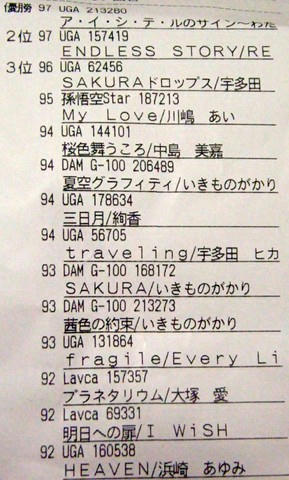 優勝 97 UGA 213280
ア・イ・シ・テ・ルのサイン〜わた
2位 97 UGA 157419
ENDLESS STORY/RE
3位 96 UGA 62456
SAKURAドロップス/宇多田
95 孫悟空Star 187213
My Love/川嶋 あい
94 UGA 144101
桜色舞うころ/中島 美嘉
94 DAM G-100 206489
夏空グラフィティ/いきものがかり
94 UGA 178634
三日月/絢香
94 UGA 56705
traveling/宇多田 ヒカ
93 DAM G-100 168172
SAKURA/いきものがかり
93 DAM G-100 213273
茜色の約束/いきものがかり
93 UGA 131864
fragile/Every Li
92 Lavca 157357
プラネタリウム/大塚 愛
92 Lavca 69331
明日への扉/I WiSH
92 UGA 160538
HEAVEN/浜崎 あゆみ